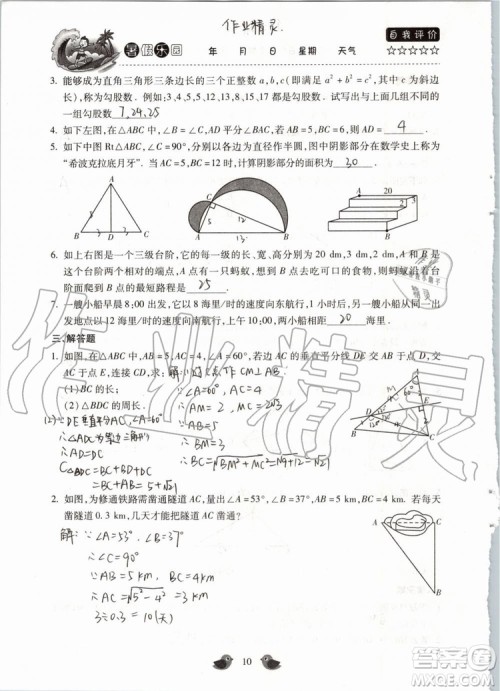 作业精灵
暑假乐园 年 月 日 星期 天气 自我评价
☆☆☆☆☆
3. 能够成为直角三角形三条边长的三个正整数 a,b,c(其中满足 a²+b²=c²,其中 c 为斜边
长),称为勾股数.例如:3、4、5,5、12、13 是勾股数.试写出与上面几组不同的
一组勾股数 7,24,25
4. 如下左图,在△ABC 中,∠B=∠C,AD 平分∠BAC,若 AB=5,BC=6,则 AD= 4 .
5. 如下图 Rt△ABC 中,∠C=90°,分别以各边为直径作半圆,图中阴影部分在数学史上称为
“希波克拉底月牙”.当 AC=5,BC=12 时,计算阴影部分的面积为 30 .
6. 如上右图是一个三级台阶,它的每一级的长、宽、高分别为 20 dm,3 dm,2 dm,A 和 B
是这个台阶两个相对的端点,A 点有一只蚂蚁,想到 B 点去吃可口的食物,则蚂蚁沿着台
阶面爬行到 B 点的最短路程是 25 .
7. 一艘小船早晨 8:00 出发,它以 8 海里/时的速度向东航行,1 小时后,另一艘小船于 9:00
出发,以 12 海里/时的速度向南航行,10:00 两小船相距 20 海里.
三、解答题
1. 如图,△ABC 中,AB=5,AC=6,∠A=60°,若 AC 的垂直平分线 DE 交 AB 于点 D,交
AC 于点 E,连接 CD,求:
(1)BC 的长;
(2)△BDC 的周长.
∵∠A=60°, AC=4
∴AM=2
∵AB=5
∴BM=3
∴△ADC为等边三角形
C△BDC=BC+BD+DC
=BC+AB=5+√21
2. 如图,为修通铁路需凿通隧道 AC,量出∠A=53°,∠B=37°,AB=5 km,BC=4 km,若每天
凿隧道 0.3 km,几天才能把隧道 AC 凿通?
解:∵∠A=53°,∠B=37°
∴∠C=90°
∵AB=5km, BC=4km
∴AC=√5²-4²
3÷0.3=10(天)
10
答案圈